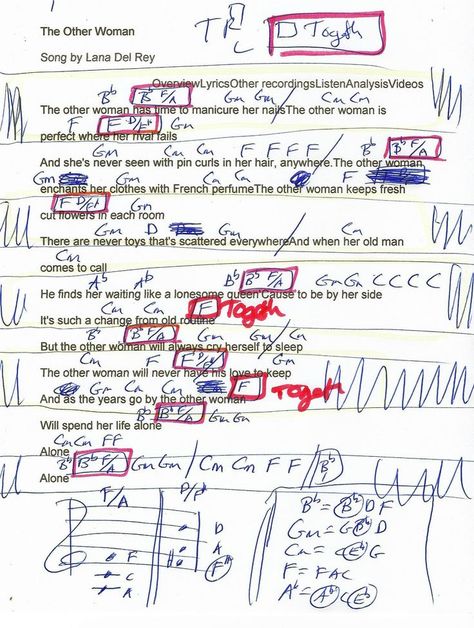 The Other Woman
T
□ Togeth
Song by Lana Del Rey
OverviewLyricsOther recordingsListenAnalysisVideos
B♭ B♭ F/A Gm Gm / Cm Cm
The other woman has time to manicure her nailsThe other woman is
F F D/F# Gm
perfect where her rival fails
Gm Cm Cm F F F F / B♭ B♭ F/A
And she's never seen with pin curls in her hair, anywhere.The other woman
Gm Gm Cm Cm F
enchants her clothes with French perfumeThe other woman keeps fresh
F D/F# Gm
cut flowers in each room
Gm D Gm / Cm
There are never toys that's scattered everywhereAnd when her old man
Cm
comes to call
A♭ A♭ B♭ B♭ F/A Gm Gm C C C C
He finds her waiting like a lonesome queen'Cause to be by her side
Cm Cm F Togeth
It's such a change from old routine
B♭ B♭ F/A Gm Gm / Cm
But the other woman will always cry herself to sleep
Cm F F D/F# Gm
The other woman will never have his love to keep
Gm Cm Cm F Togeth
And as the years go by the other woman
B♭ B♭ F/A Gm Gm
Will spend her life alone
Cm Cm F F
Alone
B♭ B♭ F/A Gm Gm / Cm Cm F F / B♭
Alone
F/A D/F#
B♭ = B♭ D F
D
Gm = G B♭ D
A
Cm = C E♭ G
F F#
F = F A C
C
A♭ = A♭ C E♭
A